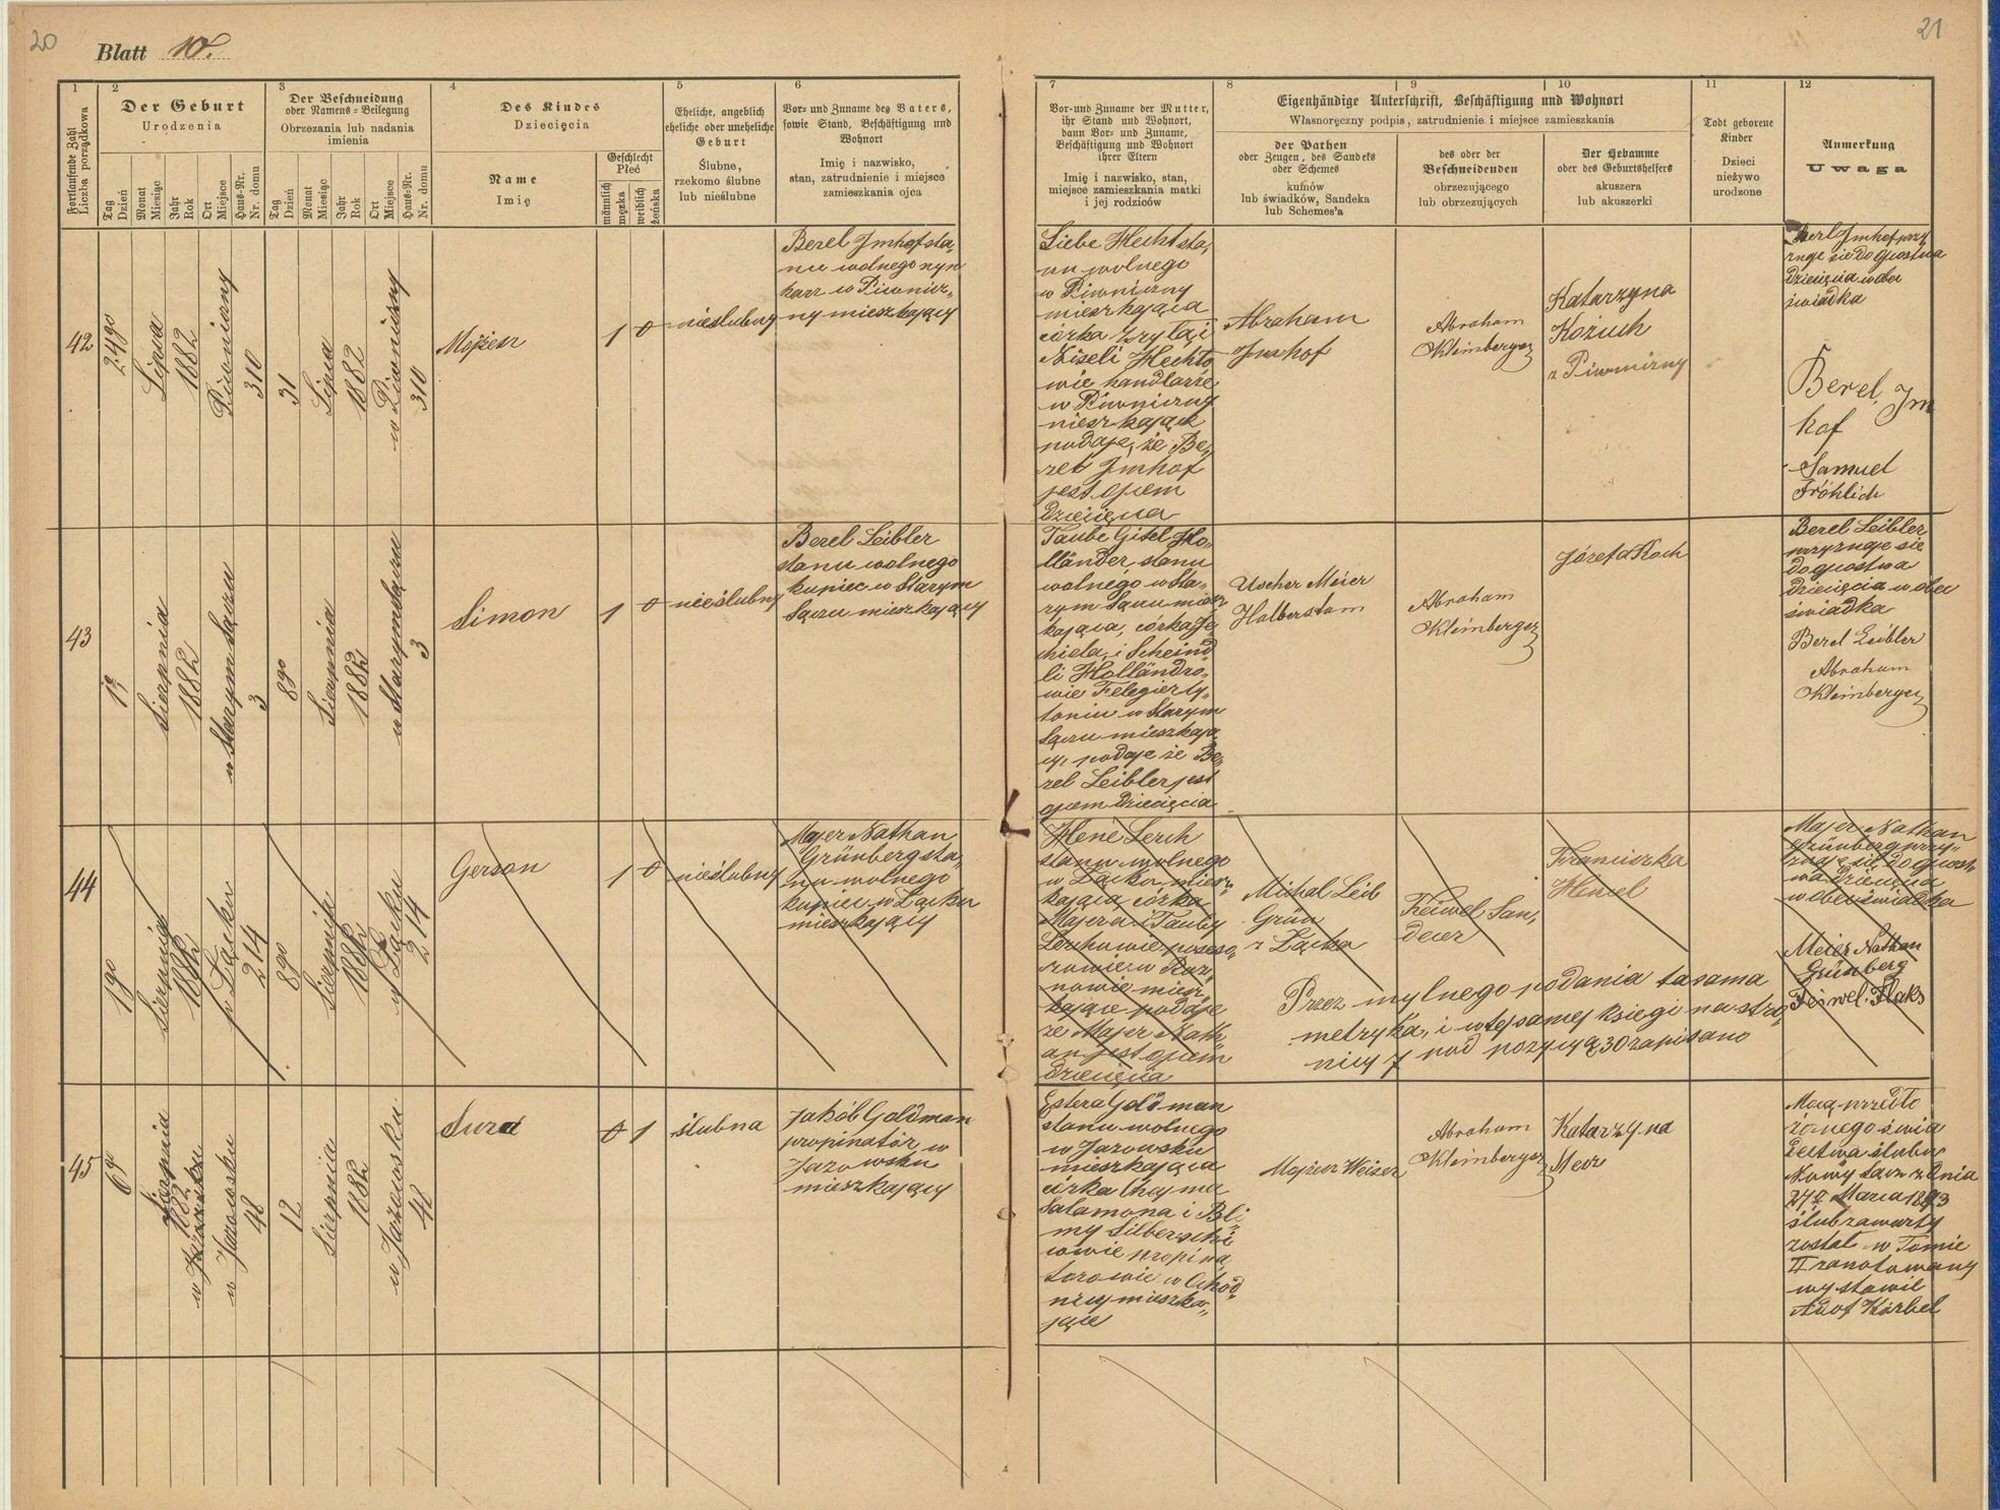 20
21
Blatt 10.
1
Fortlaufende Zahl
Liczba porządkowa
2
Der Geburt
Urodzenia
Tag
Dzień
Monat
Miesiąc
Jahr
Rok
Ort
Miejsce
Haus-Nr.
Nr. domu
3
Der Beschneidung
oder Namens-Beilegung
Obrzezania lub nadania
imienia
Tag
Dzień
Monat
Miesiąc
Jahr
Rok
Ort
Miejsce
Haus-Nr.
Nr. domu
4
Des Kindes
Dziecięcia
Name
Imię
Geschlecht
Płeć
männlich
męzka
weiblich
żeńska
5
Eheliche, angeblich
eheliche oder uneheliche
Geburt
Ślubne,
rzekomo ślubne
lub nieślubne
6
Vor- und Zuname des Vaters,
sowie Stand, Beschäftigung und
Wohnort
Imię i nazwisko,
stan, zatrudnienie i miejsce
zamieszkania ojca
7
Vor- und Zuname der Mutter,
ihr Stand und Wohnort,
dann Vor- und Zuname,
Beschäftigung und Wohnort
ihrer Eltern
Imię i nazwisko, stan,
miejsce zamieszkania matki
i jej rodziców
8
9
10
Eigenhändige Unterschrift, Beschäftigung und Wohnort
Własnoręczny podpis, zatrudnienie i miejsce zamieszkania
der Pathen
oder Zeugen, des Sandeks
oder Schemes
kumów
lub świadków, Sandeka
lub Schemes'a
des oder der
Beschneidenden
obrzezującego
lub obrzezujących
Der Hebamme
oder des Geburtshelfers
akuszera
lub akuszerki
11
Todt geborene
Kinder
Dzieci
nieżywo
urodzone
12
Anmerkung
Uwaga
42
24go
Lipca
1882
Piwniczny
310
31
Lipca
1882
w Piwniczny
310
Mojżesz
1
0
nieślubny
Berel Imhof sta,
nu wolnego
karz w Piwnicz,
ny mieszkający
Liebe Hecht sta,
nu wolnego
w Piwniczny
mieszkająca
córka
Niseli Hechto
wie handlarze
w Piwniczny
mieszkające
podaje, że Be,
rel Imhof
jest ojcem
dziecięcia
Abraham
Imhof
Abraham
Kleinberger
Katarzyna
Kożuch
z Piwniczny
Berl Imhof przy
znaje się do ojcostwa
dziecięcia wobec
świadka
Berel Im
hof
Samuel
Fröhlich
43
1go
Sierpnia
1882
w Starym Sączu
3
8go
Sierpnia
1882
w Starym Sączu
3
Simon
1
0
nieślubny
Berel Leibler
stanu wolnego
kupiec w Starym
Sączu mieszkający
Taube Gitel Ho,
lländer stanu
wolnego w Sta,
rym Sączu miesz
kająca, córka Je
chiela i Scheind
li Holländro,
wie
w Starym
Sączu mieszkają
cy, podaje że Be,
rel Leibler jest
ojcem dziecięcia
Uscher Meier
Halberstam
Abraham
Kleinberger
Józefa Koch
Berel Leibler
przyznaje się
do ojcostwa
dziecięcia wobec
świadka
Berel Leibler
Abraham
Kleinberger
44
1go
Sierpnia
1882
w Łącku
214
8go
Sierpnia
1882
w Łącku
214
Gerson
1
0
nieślubny
Majer Nathan
Grünberg sta,
nu wolnego
kupiec w Łącku
mieszkający
Hene Lerch
stanu wolnego
w Łącku miesz,
kająca córka
Majera i Tauby
Lerchowie
miesz,
kające podaje
że Majer Nath,
an jest ojcem
dziecięcia
Michal Leib
Grün
z Łącka
Feiwel San,
decer
Franciszka
Hensel
Przez mylnego podania ta sama
metryka, i w tej samej księgi na stro,
nicy 7 pod pozycyą 30 zapisano
Majer Nathan
Grünberg przy,
znaje się do ojcost,
wa dziecięcia
wobec świadka
Meier Nathan
Grünberg
Feiwel Flaks
45
6go
Sierpnia
1882
w Jazowsku
48
12
Sierpnia
1882
w Jazowsku
48
Sura
0
1
ślubna
Jakób Goldman
propinator w
Jazowsku
mieszkający
Estera Goldman
stanu wolnego
w Jazowsku
mieszkająca
córka Chayma
Salamona i Bli,
my Silberschü
towie propina
torowie w Ochod,
nicy mieszka,
jące
Mojżesz Weiser
Abraham
Kleinberger
Katarzyna
Meor
Mocą przedło
żonego świa
dectwa ślubu
Nowy Sącz z dnia
27go Marca 1893
ślub zawarty
został w Tomie
II zanotowany
wystawił
Adolf Körbel